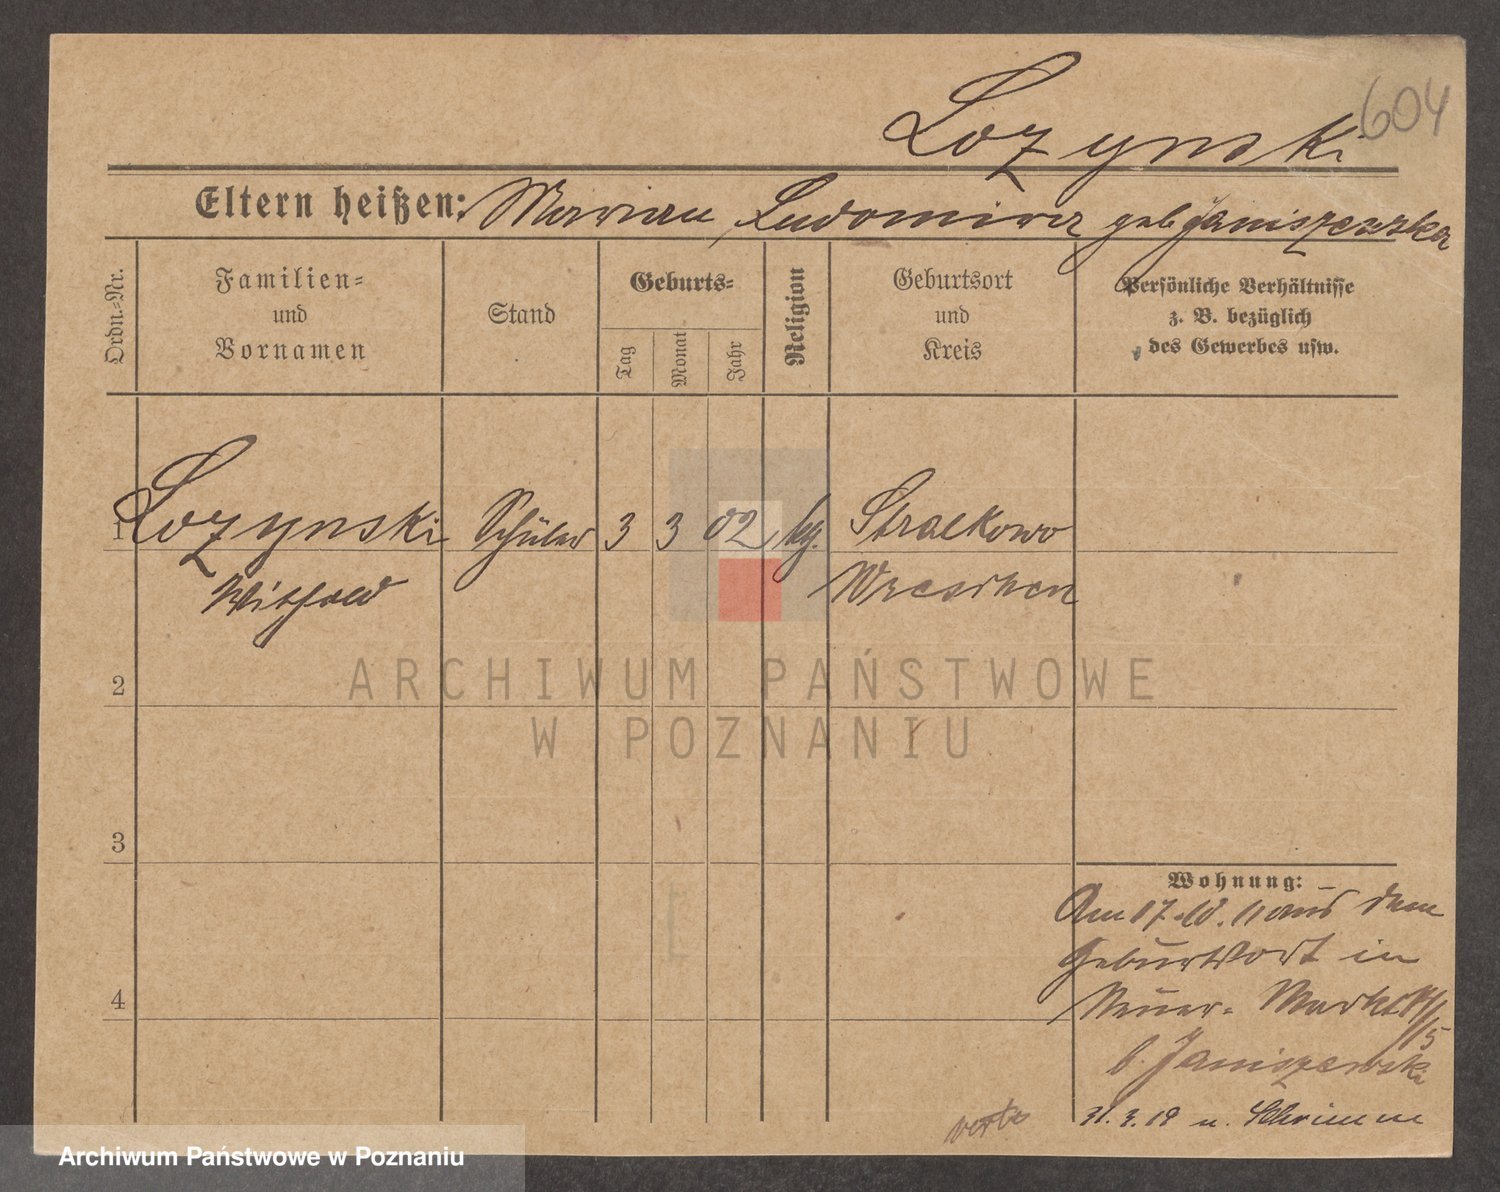 Lozynski
604
Eltern heißen: Marian, Ludomira geb Janiszewska
Ordn.-Nr.
Familien-
und
Vornamen
Stand
Geburts-
Tag
Monat
Jahr
Religion
Geburtsort
und
Kreis
Persönliche Verhältnisse
z. B. bezüglich
des Gewerbes usw.
1 Lozynski Schüler 3 3 02 kg. Stralkowo
Withold Wreschen
2
ARCHIWUM PAŃSTWOWE
W POZNANIU
3
4
Wohnung:
Am 17.10.11 aus dem
Geburtsort in
Neuer-Markt
b. Janiszewski
31.3.19 n. Schrimm
verte
Archiwum Państwowe w Poznaniu